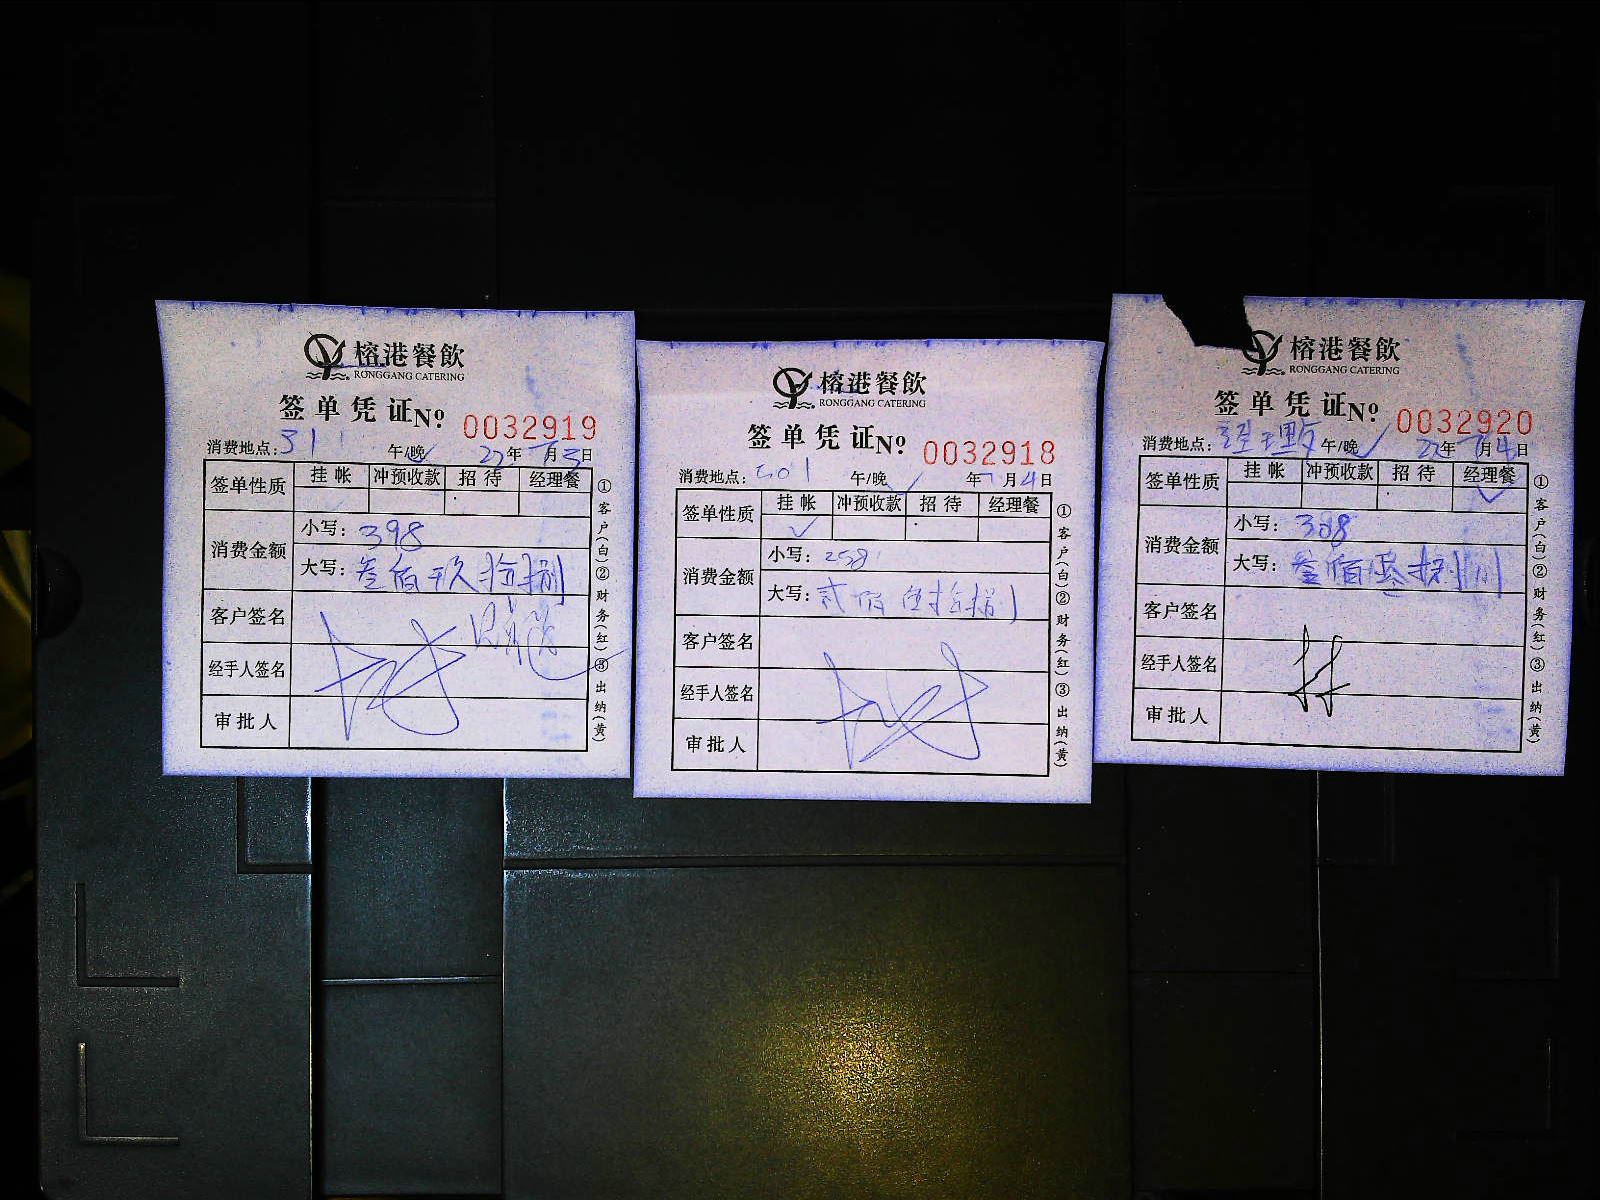 榕港餐飲
RONGGANG CATERING
签单凭证No 0032919
消费地点: 311 午/晚 22年7月3日
签单性质 挂帐 冲预收款 招待 经理餐
消费金额
小写: 398
大写: 叁佰玖拾捌
客户签名
经手人签名
审批人
①客户(白)②财务(红)③出纳(黄)
榕港餐飲
RONGGANG CATERING
签单凭证No 0032918
消费地点: 午/晚 年7月4日
签单性质 挂帐 冲预收款 招待 经理餐
消费金额
小写: 258
大写: 贰佰伍拾捌
客户签名
经手人签名
审批人
①客户(白)②财务(红)③出纳(黄)
榕港餐飲
RONGGANG CATERING
签单凭证No 0032920
消费地点: 经理 午/晚 22年7月4日
签单性质 挂帐 冲预收款 招待 经理餐
消费金额
小写:
大写: 叁佰
客户签名
经手人签名
审批人
①客户(白)②财务(红)③出纳(黄)